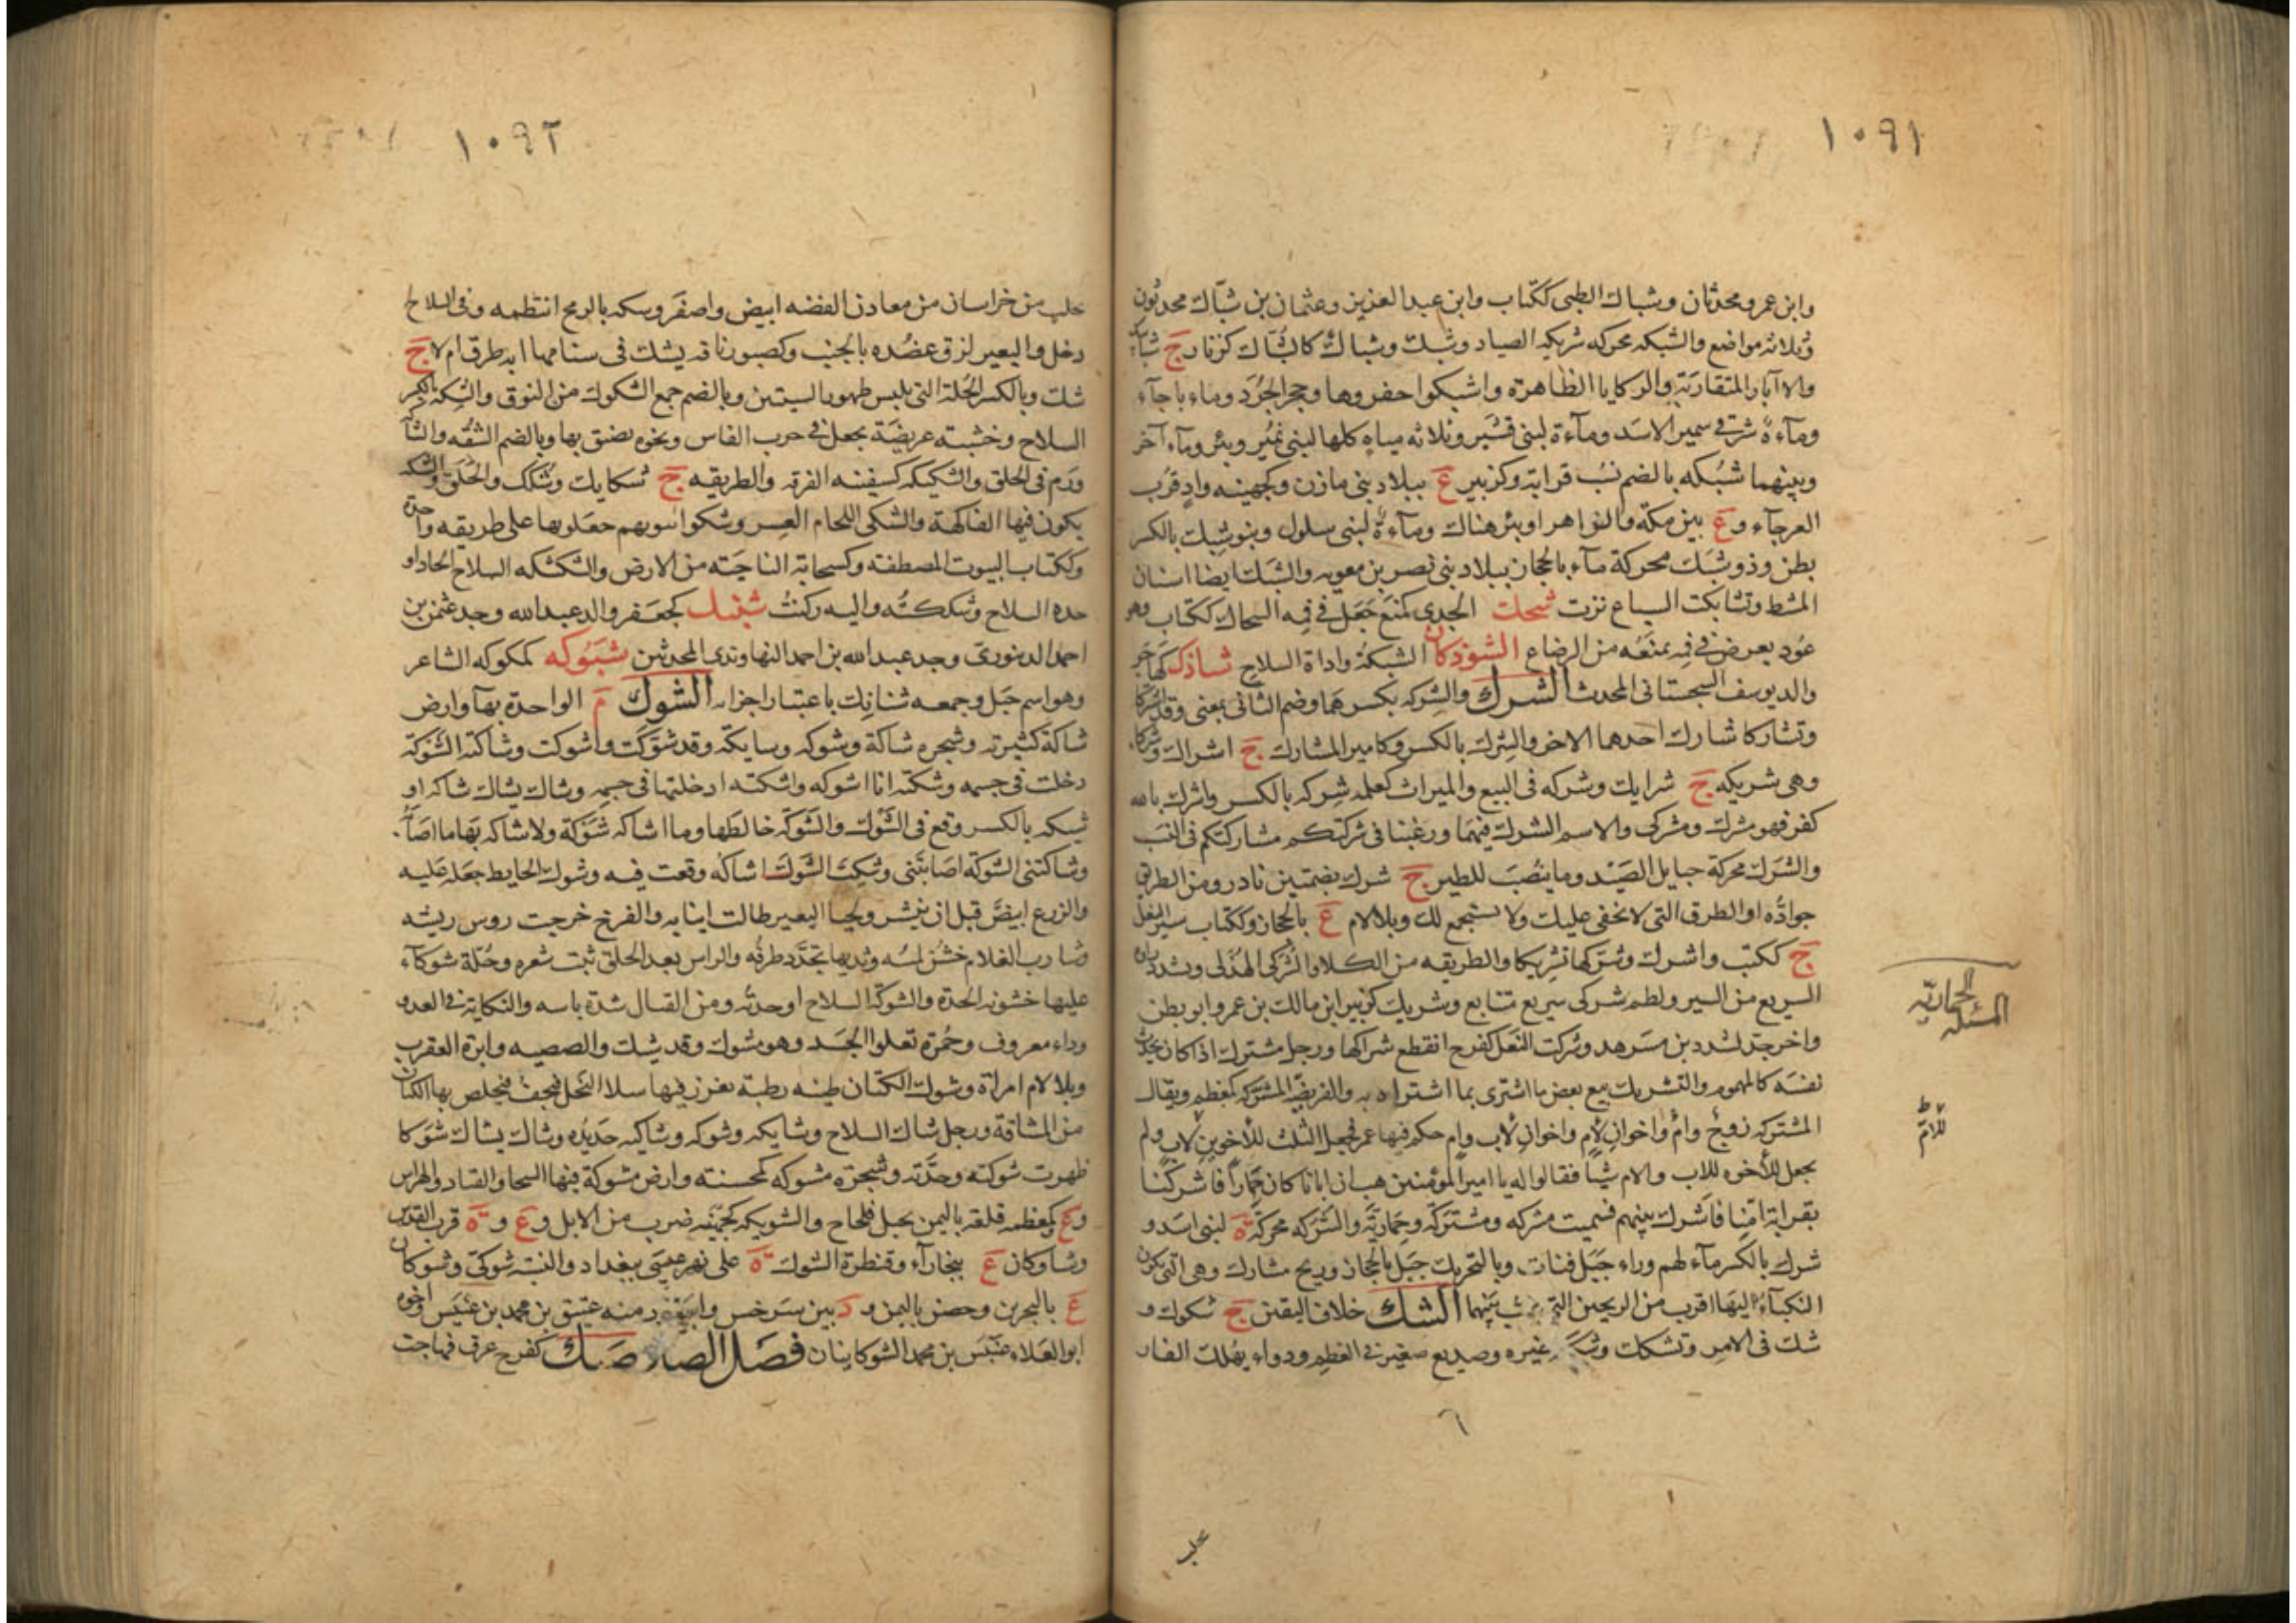 ١٠٩١
وابن عمرو محدثان وشباك الضبى ككتاب وابن عبد العزيز وعثمان بن شباك محدثون
وثلاثة مواضع والشبكه محركه شريكه الصياد وشبك وشباك كالشباك كزنار ج شبابيك
والاآبار المتقاربة والركايا الظاهرة واشبكوا حفروها وجحر الجرذ وماء باجآء
ومآءة شرقى سميرا لاسد ومآءة لبنى قشير وثلاثه مياه كلها لبنى نمير وبئر ومآء آخر
وبينهما شبكه بالضم نسب قرابة وكزبير ع ببلاد بنى مازن وكجهينه واد قرب
العرجآء و ع بين مكة والزواهر او بئر هناك ومآءة لبنى سلول وبنو شبك بالكسر
بطن وذو شبك محركة مآء بالحجاز ببلاد بنى نصر بن معويه والشبك ايضا اسنان
المشط وتشابكت السباع نزت شحك الجدى كمنع جعل فى فيه الشحاك ككتاب وهو
عود يعرض فى فيه يمنعه من الرضاع الشوذكان الشبكة واداة السلاح شاذك كهاجر
والد يوسف السجستانى المحدث الشرك والشركه بكسرهما وضم الثانى بمعنى وقد اشتركا
وتشاركا شارك احدهما الاخر والشرك بالكسر وكامير المشارك ج اشراك وشركاء
وهى شريكه ج شرايك وشركه فى البيع والميراث كعلمه شركه بالكسر واشرك بالله
كفر فهو مشرك ومشركى والاسم الشرك فيهما ورغبنا فى شرككم مشاركتكم فى النسب
والشرك محركة حبايل الصيد وما ينصب للطير ج شرك بضمتين نادر ومن الطريق
جوادّه او الطرق التى لا تخفى عليك ولا تستجمع لك وبلا لام ع بالحجاز وككتاب سير النعل
ج ككتب واشرك وشركها تشريكا والطريقه من الكلاء والشركى الهذلى وتشدد راؤه
السريع من السير ولطم شركى سريع متتابع وشريك كزبير ابن مالك بن عمرو ابو بطن
واخر جد لمسدد بن مسرهد وشركت النعل كفرح انقطع شراكها ورجل مشترك اذا كان يحدث
نفسه كالمهموم والتشريك بيع بعض ما اشترى بما اشتراه به والفريضة المشتركه كمعظم ويقال
المشتركه زوج وام واخوان لام واخوان لاب وام حكم فيها عمر فجعل الثلث للأخوين لاب ولم
يجعل للأخوه للاب والام شيأ فقالوا له يا امير المؤمنين هب ان ابانا كان حمارا فاشركنا
بقرابة امنا فأشرك بينهم فسميت مشركه ومشتركة وحمارية والشركه محركة ة لبنى اسد و
شرك بالكسر مآء لهم وراء جبل قنات وبالتحريك جبل بالحجاز وريح مشارك وهى التى تكون
النكبآء اليها اقرب من الريحين التى تهب بينهما الشك خلاف اليقين ج شكوك و
شك فى الامر وتشكك وشككه غيره وصديع صغير فى العظم ودواء يهلك الفار
المسئله الحماريّة
للام ط
٦
يجلب
١٠٩٢
يجلب من خراسان من معادن الفضه ابيض واصفر وسكه بالرمح انتظمه وفى السلاح
دخل والبعير لزق عضده بالجنب وكصبور ناقه يشك فى سنامها ابه طرق ام لا ج
شك وبالكسر الحلة التى يلبس ظهور السيتين وبالضم جمع الشكوك من النوق والشكه بالكسر
السلاح وخشبته عريضة يجعل فى خرب الفاس ونحوه يضيق بها وبالضم الشقه والشاكّه
ورم فى الحلق والشكيكه كسفينه الفرقه والطريقه ج شكايك وشكك والخلق والسلّه
يكون فيها الفاكهة والشكى اللجام العسر وشكوا بيوتهم جعلوها على طريقه واحدة
وككتاب البيوت المصطفة وكسحابة الناحيته من الارض والشكشكه السلاح الحاد او
حده السلاح وشككته واليه ركنت شنبك كجعفر والد عبدالله وجد عثمن بن
احمد الدينورى وجد عبدالله بن احمد النهاوندى المحدثين شنوكه كمكوكه الشاعر
وهو اسم جبل وجمعه شنائك باعتبار اجزائه الشوك م الواحدة بهآ وارض
شاكة كثيرته وشجره شاكة وشوكه وشايكة وقد شوكت واشوكت وشاكته الشوكة
دخلت فى جسمه وشكته انا اشوكه واشكته ادخلتها فى جسمه وشاك يشاك شاكه او
شيكه بالكسر وقع فى الشوك والشوكة خالطها وما اشاكه شوكة ولا شاكه بها ما اصابه
وشاكتنى الشوكة اصابتنى وشكت الشوك اشاكه وقعت فيه وشوك الحايط جعله عليه
والزرع ابيض قبل ان ينتشر ولحيا البعير طالت انيابه والفرخ خرجت روس ريشه
وشارب الغلام خشن لمسه وثديها تحدد طرفه والراس بعد الحلق نبت شعره وحلة شوكآء
عليها خشونة الجدة والشوكة السلاح او حدته ومن القتال شدة باسه والنكاية فى العدو
وداء معروف وحمرة تعلوا الجسد وهو مشوك وقد شيك والصيصيه وابرة العقرب
وبلا لام امراة وشوك الكتان طينه رطبة يغرز فيها سلا النخل فيجف فيخلص بها الكتان
من المشاقة ورجل شاك السلاح وشايكه وشوكه وشاكيه حديده وشاك يشاك شوكا
ظهرت شوكته وحدته وشجرة مشوكه كمحسنته وارض مشوكة فيها السحا والقتاد والهراس
و ع وكمعظمه قلعة باليمن بجبل قلحاح والشويكه كجهينه ضرب من الابل و ع و ة قرب القدس
وشاوكان ع ببخارآء وقنطرة الشوك ة على نهر عيسى ببغداد والنسبة شوكىّ وشوكان
ع بالبحرين وحصن باليمن و د بين سرخس وابيورد منه عتيق بن محمد بن عنبس واخوه
ابو العلاء عنبس بن محمد الشوكانيان فصل الصاد صئك كفرح عرق فهاجت